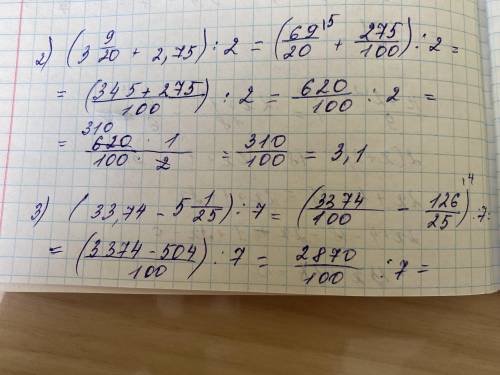 2) (3 9/20 + 2,75) : 2 = (69/20 ⁵ + 275/100) : 2 =
= ((345 + 275)/100) : 2 = 620/100 : 2 =
= (620 · 1)/(100 · 2) 310 = 310/100 = 3,1
3) (33,74 - 5 1/25) : 7 = (3374/100 - 126/25 ⁴) : 7 =
= ((3374 - 504)/100) : 7 = 2870/100 : 7 =